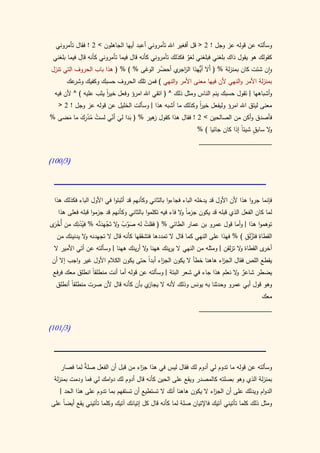 وسألته عن قوله عز وجل ! 2 < قل أفغير الله تأمروني أعبد أيها الجاهلون > 2 ! فقال تأمروني
كقولك هو يقول ذاك بلغني فبلغني لغوٌ فكذلك تأمروني كأنه قال فيما تأمروني كأنه قال فيما بلغني
وإن شئت كان بمنزلة % ( ألا أيُّهذا الزاجِري أحضُرُ الوغى % ( % ( هذا باب الحروف التي تنزل
بمنزلة الأمر والنهي لأن فيها معنى الأمر والنهي ) فمن تلك الحروف حسبك وكفيك وشرعك
وأشباهها | تقول حسبك ينم الناس ومثل ذلك ^ ( اتقي الله امرؤ وفعل خيراً يثب عليه ) ^ لأن فيه
معنى ليتق الله امرؤ وليفعل خيراً وكذلك ما أشبه هذا | وسألت الخليل عن قوله عز وجل ! 2 <
فأصدق وأكن من الصالحين > 2 ! فقال هذا كقول زهير % ( بدا لي أنّي لستُ مُدْرِك ما مضى %
ولا سابق شيئاً إذا كان جائيا ) %
(100/3)
فإنما جروا هذا لأن الأول قد يدخله الباء فجاءوا بالثاني وكأنهم قد أثبتوا في الأول الباء فكذلك هذا
لما كان الفعل الذي قبله قد يكون جزماً ولا فاء فيه تكلموا بالثاني وكأنهم قد جزموا قبله فعلى هذا
توهموا هذا | وأما قول عمرو بن عمار الطائي % ( فقلتُ له صَوِّبْ ولا تَجْهدَنَّه % فيُدْنِك من أخرى
القطاةِ فتزْلقِ ) % فهذا على النهي كما قال لا تمددها فتشققها كأنه قال لا تجهدنه ولا يدنينك من
أخرى القطاة ولا تزلقن | ومثله من النهي لا يرينك ههنا ولا أرينك ههنا | وسألته عن آتي الأمير لا
يقطع اللص فقال الجزاء هاهنا خطأ لا يكون الجزاء أبداً حتى يكون الكلام الأول غير واجب إلا أن
يضطر شاعرٌ ولا نعلم هذا جاء في شعر البتة | وسألته عن قوله أما أنت منطلقاً أنطلق معك فرفع
وهو قول أبي عمرو وحدثنا به يونس وذلك لأنه لا يجازي بأن كأنه قال لأن صرت منطلقاً أنطلق
معك
(101/3)
وسألته عن قوله ما تدوم لي أدوم لك فقال ليس في هذا جزاء من قبل أن الفعل صلةٌ لما فصار
بمنزلة الذي وهو بصلته كالمصدر ويقع على الحين كأنه قال أدوم لك دوامك لي فما ودمت بمنزلة
الدوام ويدلك على أن الجزاء لا يكون هاهنا أنك لا تستطيع أن تستفهم بما تدوم على هذا الحد |
ومثل ذلك كلما تأتيني آتيك فالإتيان صلة لما كأنه قال كل إتيانك آتيك وكلما تأتيني يقع أيضاً على